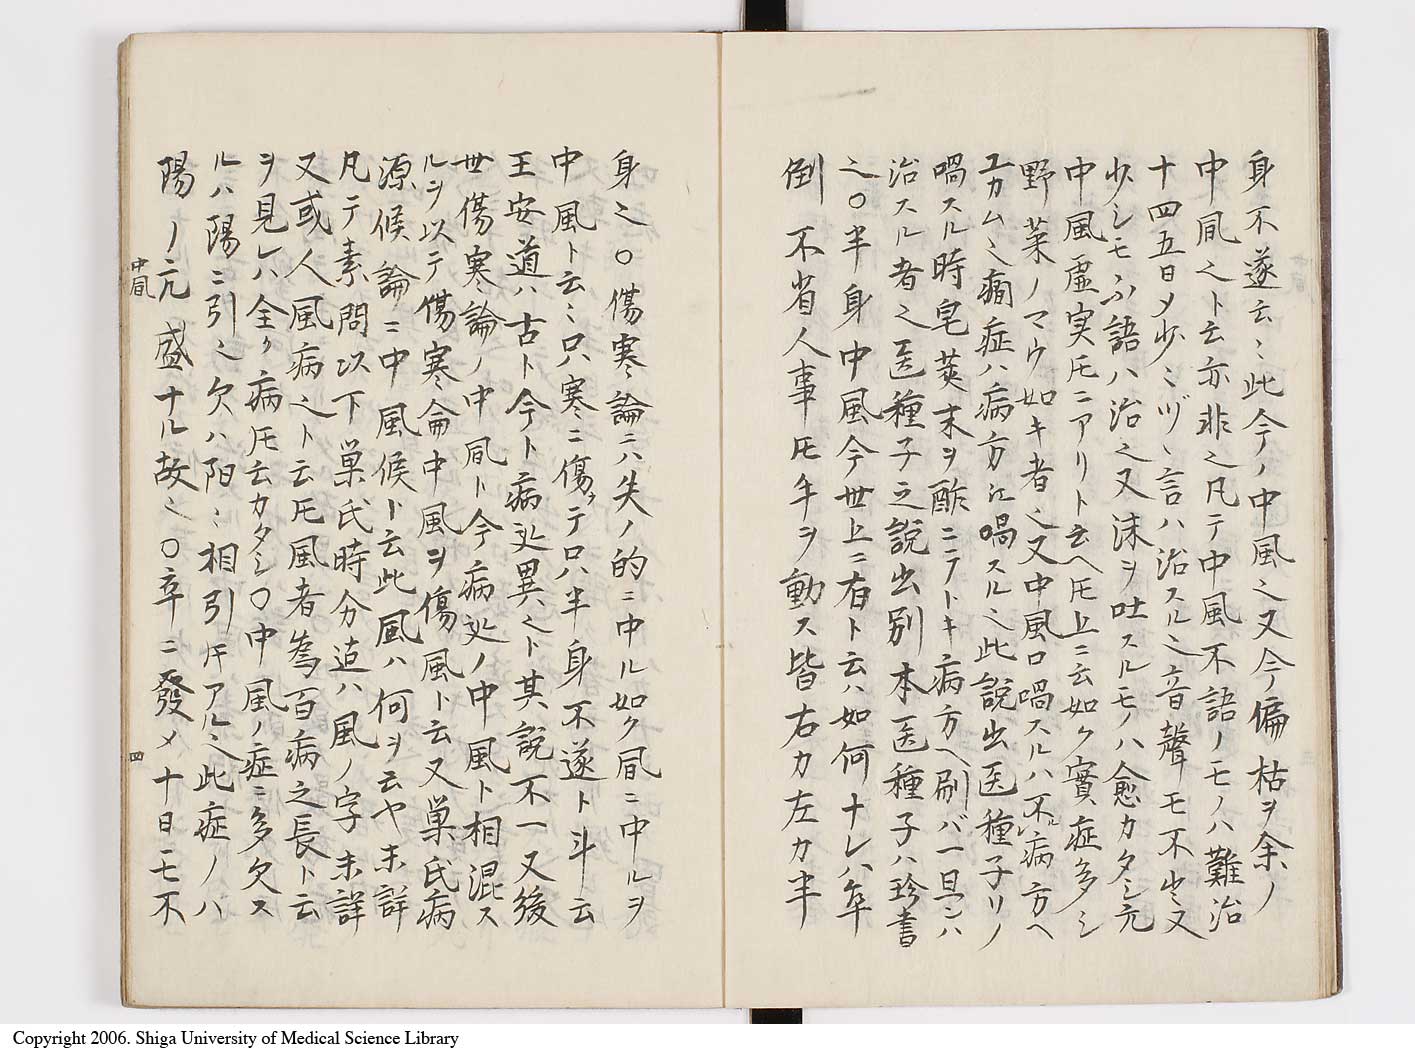 身不遂云〻此今ノ中風之又今偏枯ヲ余ノ
中凬之ト云亦非之凡テ中風不語ノモノハ難治
十四五日〆少〻ヅヽ言ハ治スル之音聲モ不出又
少シモ不語ハ治之又沫ヲ吐スルモノハ愈カタシ元
中風虚実圧ニアリト云ヘ圧上ニ云如ク實症多シ
野菜ノマウ如キ者之又中風口喎スルハ不病方ヘ
ユカム〻癇症ハ病方江喎スル之此説出医種子リノ
喎スル時皂莢末ヲ酢ニテトキ病方ヘ刷バ一旦ンハ
治スル者之医種子之説出別本医種子ハ珍書
之〇半身中風今世上ニ有ト云ハ如何ナレハ卒
倒不省人事圧手ヲ動ス皆右カ左カ半
身之〇傷寒論ニハ失ノ的ニ中ル如ク凬ニ中ルヲ
中風ト云〻只寒ニ傷テ只半身不遂ト斗云
王安道ハ古ト今ト病ハ異之ト其説不一又後
世傷寒論ノ中凬ト今病ノ中風ト相混ス
ルヲ以テ傷寒侖中風ヲ傷風ト云又巣氏病
源候論ニ中風候ト云此風ハ何ヲ云ヤ未詳
凡テ素問以下巣氏時分迠ハ風ノ字未詳
又或人風病之ト云圧風者為百病之長ト云
ヲ見レハ全ク病圧云カタシ〇中風ノ症ニ多欠ス
ルハ陽ニ引之欠ハ阳〻相引圧アル之此症ノハ
陽ノ元盛ナル故之〇卒ニ發〆十日モ不
中凬
四
Copyright 2006. Shiga University of Medical Science Library